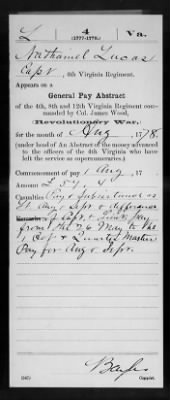 L 4 Va.
(1777-1778.)
Nathaniel Lucas
Capt, 4th Virginia Regiment.
Appears on a
General Pay Abstract
of the 4th, 8th and 12th Virginia Regiment com-
manded by Col. James Wood,
(Revolutionary War,)
for the month of Aug, 1778.
(under head of An Abstract of the money advanced
to the officers of the 4th Virginia who have
left the service as supernumeraries.)
Commencement of pay 1 Aug, 17
Amount £
Casualties Pay & Subsistance as
Lt. Aug & Sept & difference
Remarks: of Capt & Lieuts pay
from the 26 May to the
Capt & Quarter Masters
Pay for Aug & Sept.
Copyist.